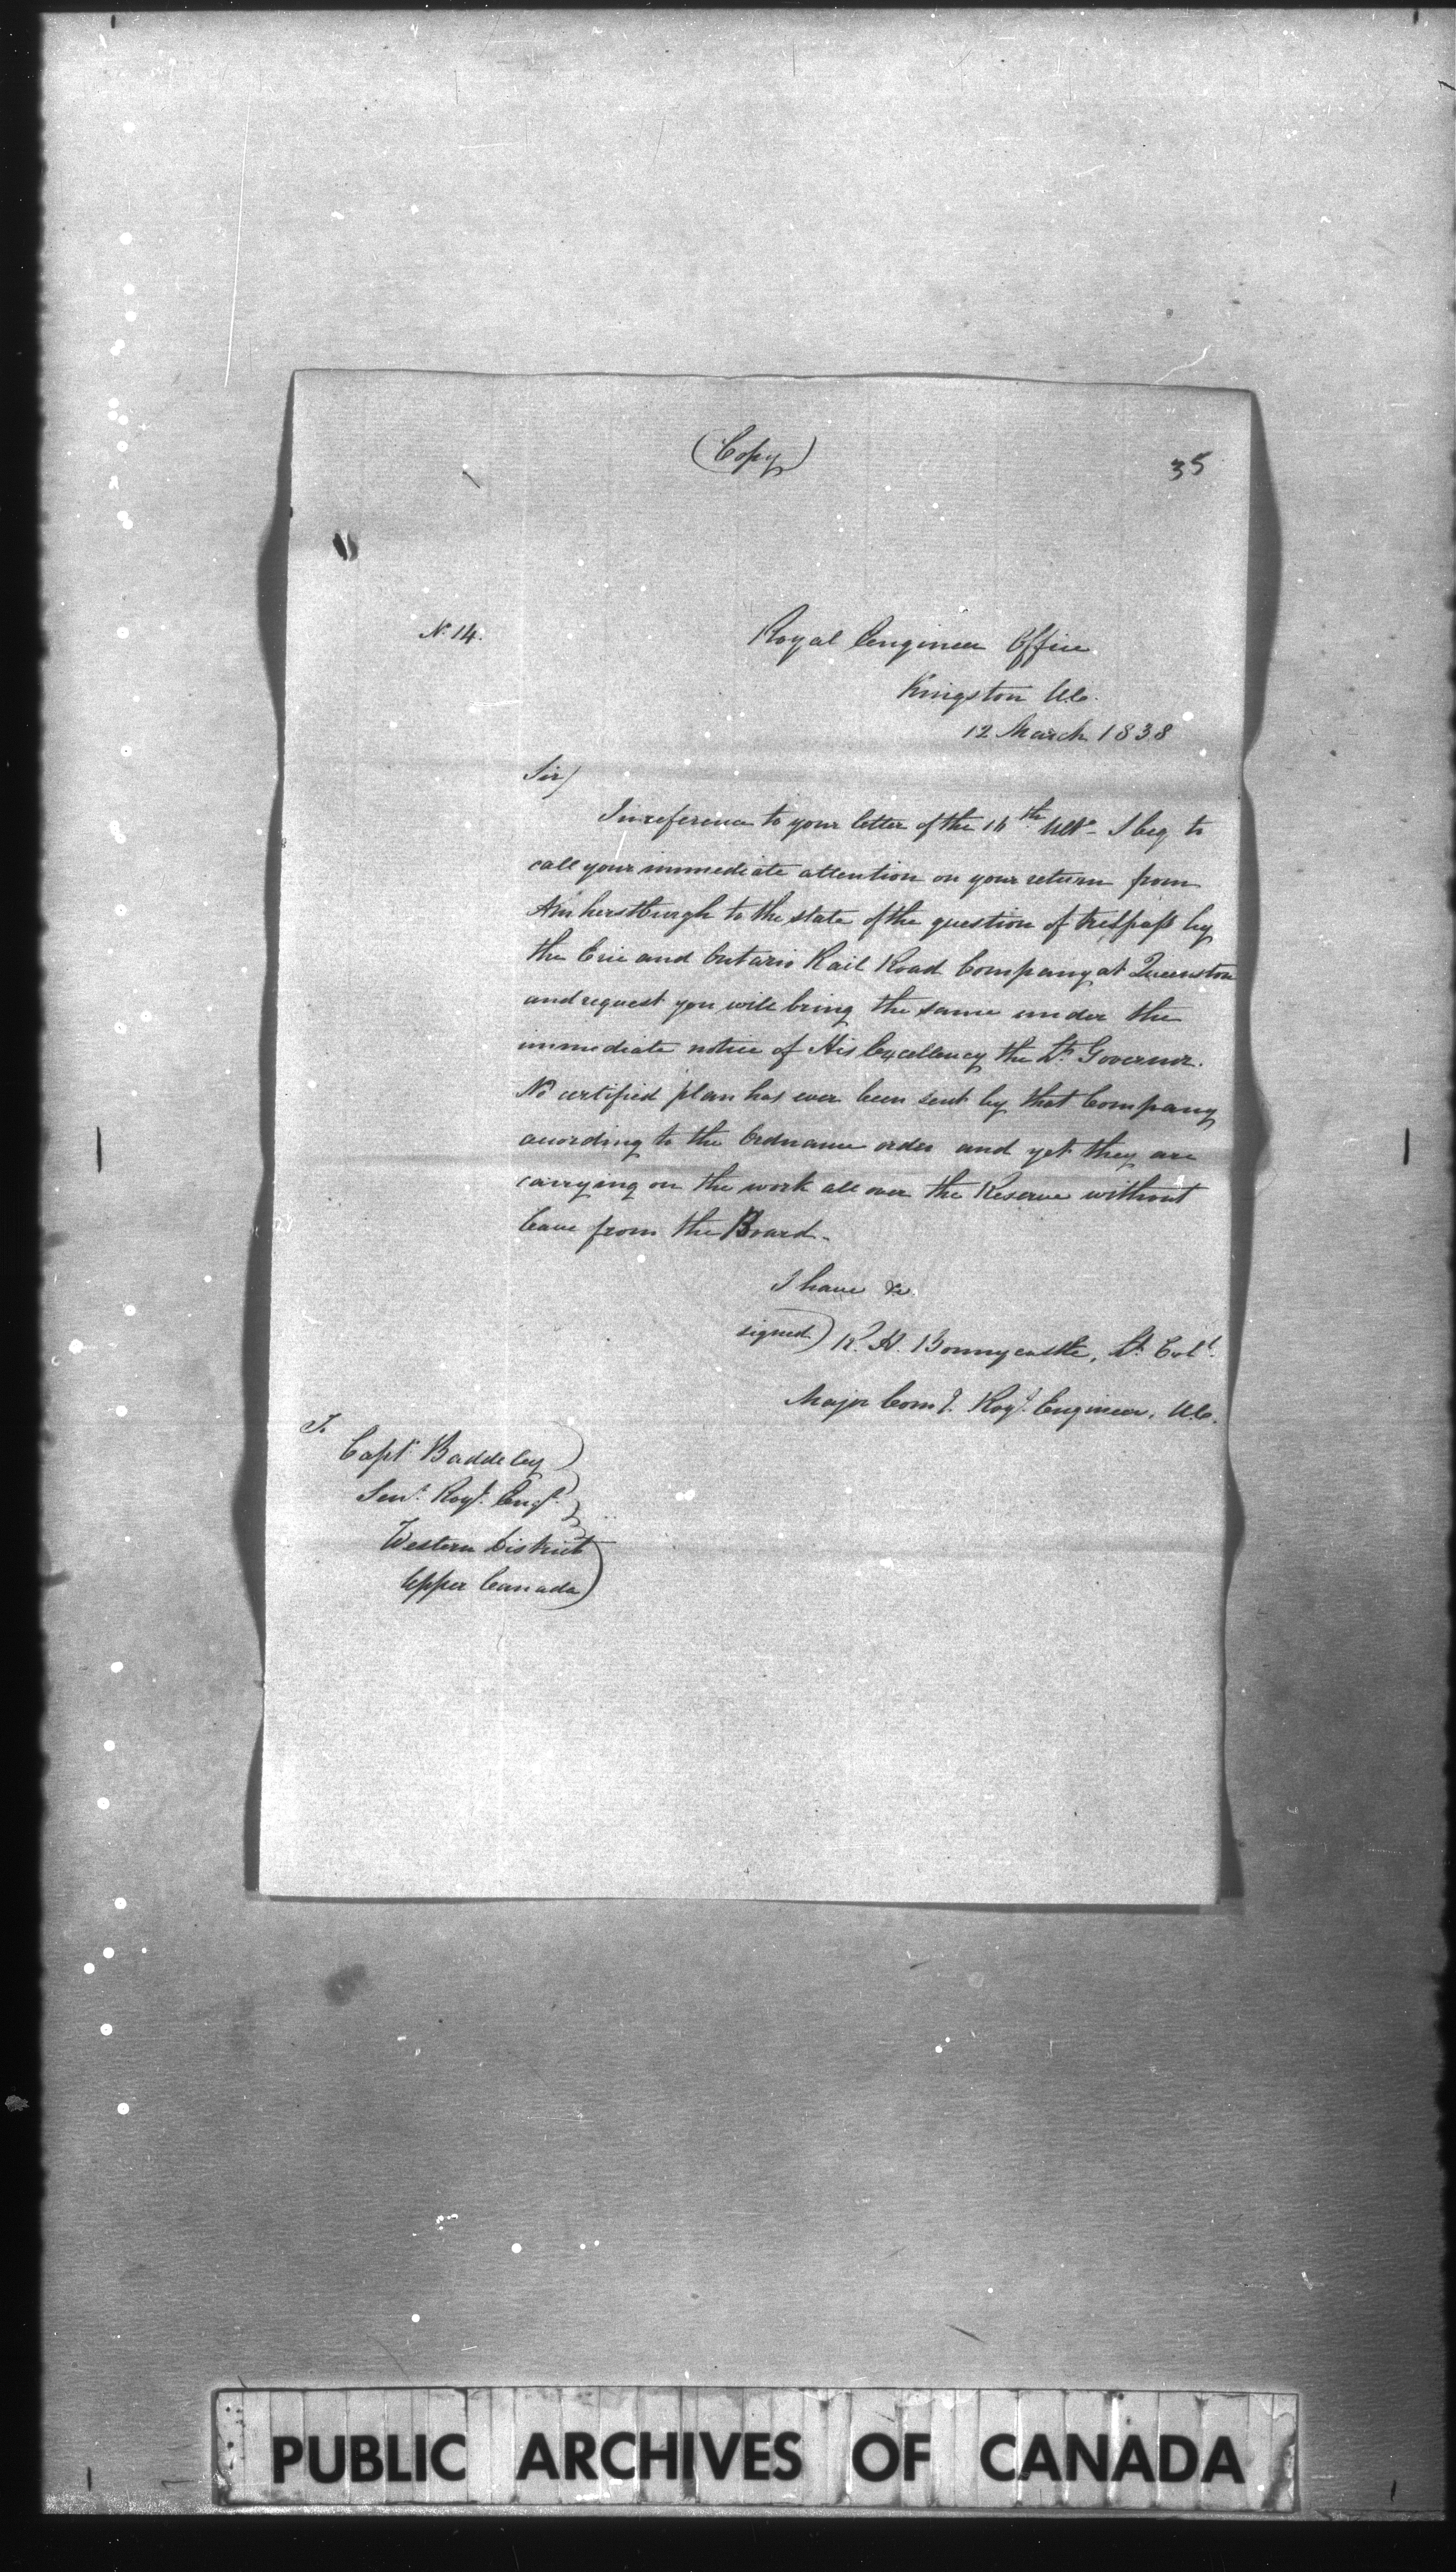 (Copy)
35
No. 14.
Royal Engineer Office
Kingston U.C.
12 March 1838
Sir/
In reference to your letter of the 16th Ulto. I beg to
call your immediate attention on your return from
Amherstburgh to the state of the question of trespass by
the Erie and Ontario Rail Road Company at Queenston
and request you will bring the same under the
immediate notice of His Excellency the Lt. Governor.
No certified plan has ever been sent by that Company
according to the Ordnance order and yet they are
carrying on the work all over the Reserve without
leave from the Board.
I have &c.
signed) R. H. Bonnycastle, Lt. Coll.
Major Comg. Royl. Engineer, U.C.
To
Captn. Baddeley
Senr. Royl. Engr.
Western District
Upper Canada
PUBLIC ARCHIVES OF CANADA